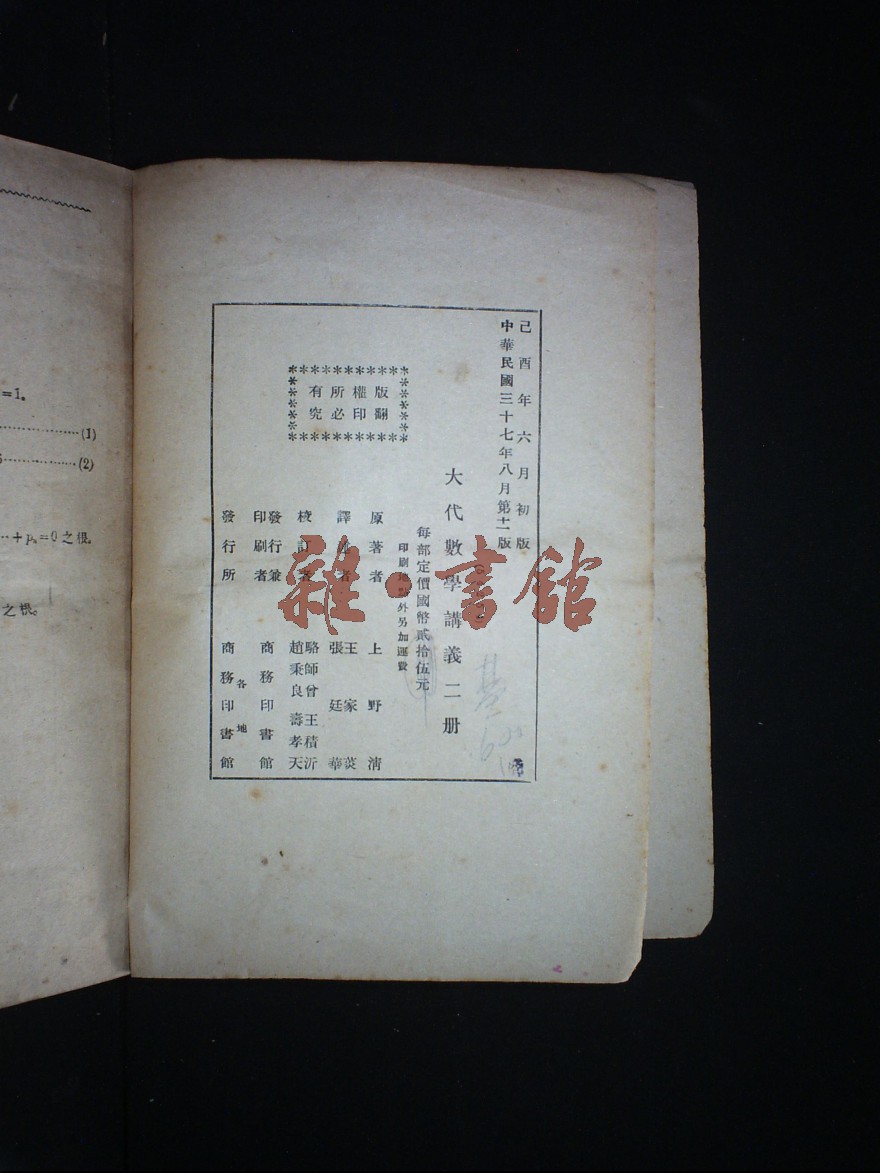 己酉年六月初版
中華民國三十七年八月第十一版
大代數學講義二册
每部定價國幣貳拾伍元
印刷地點外另加運費
版權所有
翻印必究
原著者 上野清
譯述者 王家菼 張廷華
校訂者 駱師曾 王積沂 趙秉良 壽孝天
發行兼印刷者 商務印書館
發行所 各地 商務印書館
=1。
(1)
(2)
+pₙ=0之根。
之根。
雜·書館